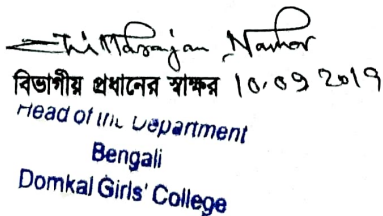 Chittaranjan Naskar
বিভাগীয় প্রধানের স্বাক্ষর 10.09 2019
Head of the Department
Bengali
Domkal Girls' College